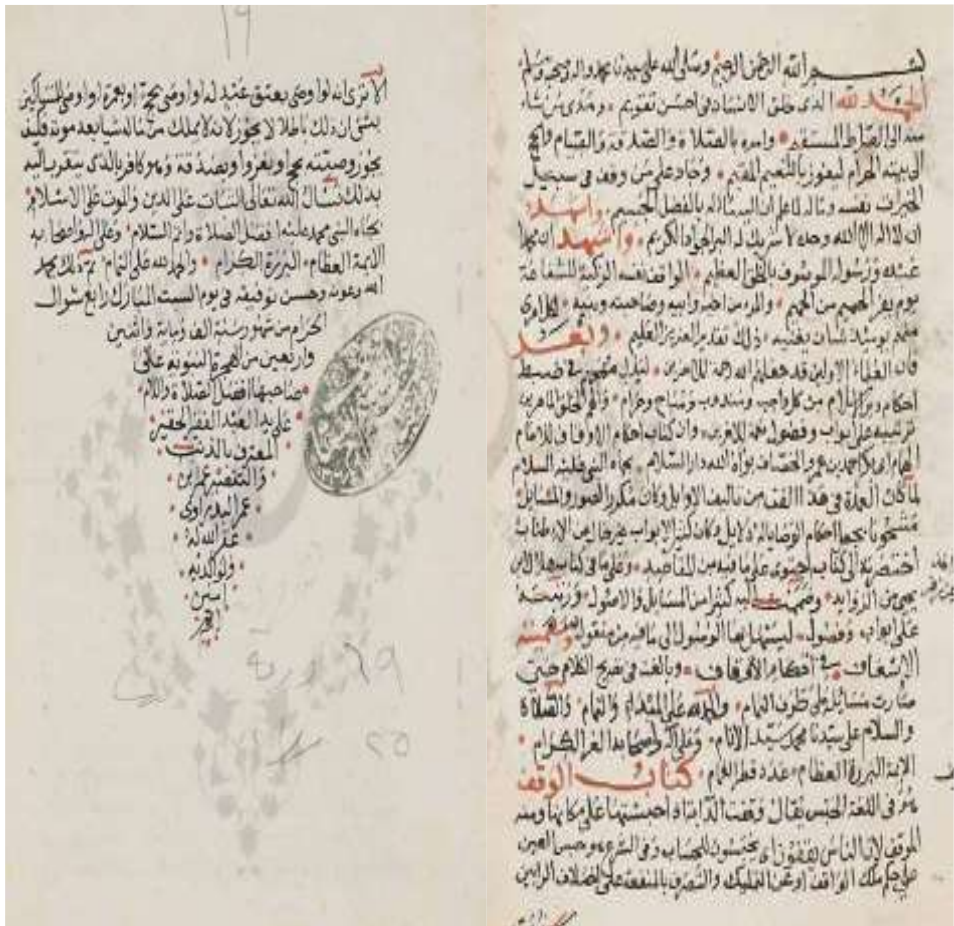 بسم الله الرحمن الرحيم وصلى الله على سيدنا محمد واله وصحبه وسلم
الحمد لله الذى خلق الانسان فى احسن تقويم وهدى من شاء
منه الى الصراط المستقيم وامره بالصلاة والصدقة والصيام والحج
الى بيته الحرام ليفوز بالنعيم المقيم وجاد على من وقف فى سبيل
الخيرات نفسه وماله بالفضل الجسيم واشهد
ان لا اله الا الله وحده لا شريك له البر الجواد الكريم واشهد ان محمدا
عبده ورسوله الموصوف بالخلق العظيم الواقف نفسه الزكية للشفاعة
يوم يفر الحميم من الحميم والمرء من اخيه وابيه وصاحبته وبنيه لكل امرئ
منهم يومئذ شان يغنيه ذلك تقدير العزيز العليم وبعد
فان العلماء الاولين قد جعلهم الله رحمة للاخرين فى ضبط
احكام من كل واجب ومندوب ومباح وحرام
ترتيبه على ابواب وفصول وان كتاب احكام الاوقاف للامام
الهمام ابى بكر احمد بن عمرو الخصاف بواه الله دار السلام بجاه النبى عليه السلام
لما كان العمدة فى هذا الفن من تاليف الاوايل وكان مكرر الصور والمسايل
مشحونا احكام الوصايا بالدلايل وكان كثير الابواب
اختصرته الى كتاب احتوى على ما فيه من المقاصد وعلى ما فى كتاب هلال ابن
يحيى من الزوايد وضممت اليه كثيرا من المسايل والاصول ورتبته
على ابواب وفصول ليسهل بها الوصول الى ما فيه من منقول وسميته
الاسعاف فى احكام الاوقاف وبالغت فى الكلام حتى
صارت مسايله على طرف الثمام والحمد لله على المبتدا والتمام والصلاة
والسلام على سيدنا محمد سيد الانام وعلى اله واصحابه الغر الكرام
الايمة البررة العظام عدد قطر الغمام كتاب الوقف
هو فى اللغة الحبس يقال وقفت الدابة اذا حبستها على مكانها ومنه
الموقف لان الناس يقفون اى يحبسون للحساب وفى الشرع هو حبس العين
على حكم ملك الواقف او عن التمليك والتصدق بالمنفعة على اختلاف الرايين
الا ترى انه لو اوصى بعتق عبد له او اوصى بحجة او بعمرة او اوصى للمساكين
بشى ان ذلك باطلا لا يجوز لانه لا يملك من ماله شيا بعد موته فكيف
يجوز وصيته بحج او بغزو او بصدقة وهو كافر بالذى يتقرب اليه
بذلك نسال الله تعالى الثبات على الدين والموت على الاسلام
بجاه النبى محمد عليه افضل الصلاة واتم السلام وعلى اله واصحابه
الايمة العظام البررة الكرام والحمد لله على التمام تم ذلك بحمد
الله وعونه وحسن توفيقه فى يوم السبت المبارك رابع شوال
الحرام من شهور سنة الف وماية واثنين
واربعين من الهجرة النبوية على
صاحبها افضل الصلاة والسلام
على يد العبد الفقير الحقير
المعترف بالذنب
والتقصير عمر بن
عمر
غفر الله له
ولوالديه
امين